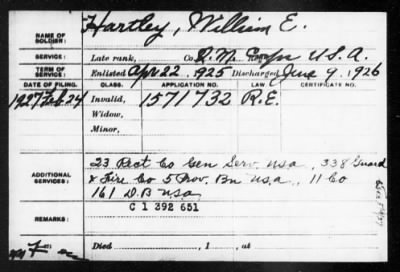 NAME OF SOLDIER: Hartley, William E.
SERVICE: Late rank, Co. Q.M. Corps Reg't U.S.A.
TERM OF SERVICE: Enlisted Apr 22, 1925 Discharged June 9, 1926
DATE OF FILING. CLASS. APPLICATION NO. LAW. CERTIFICATE NO.
1927 Feb 24 Invalid, 1571732 R.E.
Widow,
Minor,
ADDITIONAL SERVICES: 23 Rect Co Gen Serv. USA, 338 Guard
& Fire Co 5 Prov. Bn U.S.A., 11 Co
161 D.B USA.
C 1 392 651
REMARKS:
Died , 1 , at